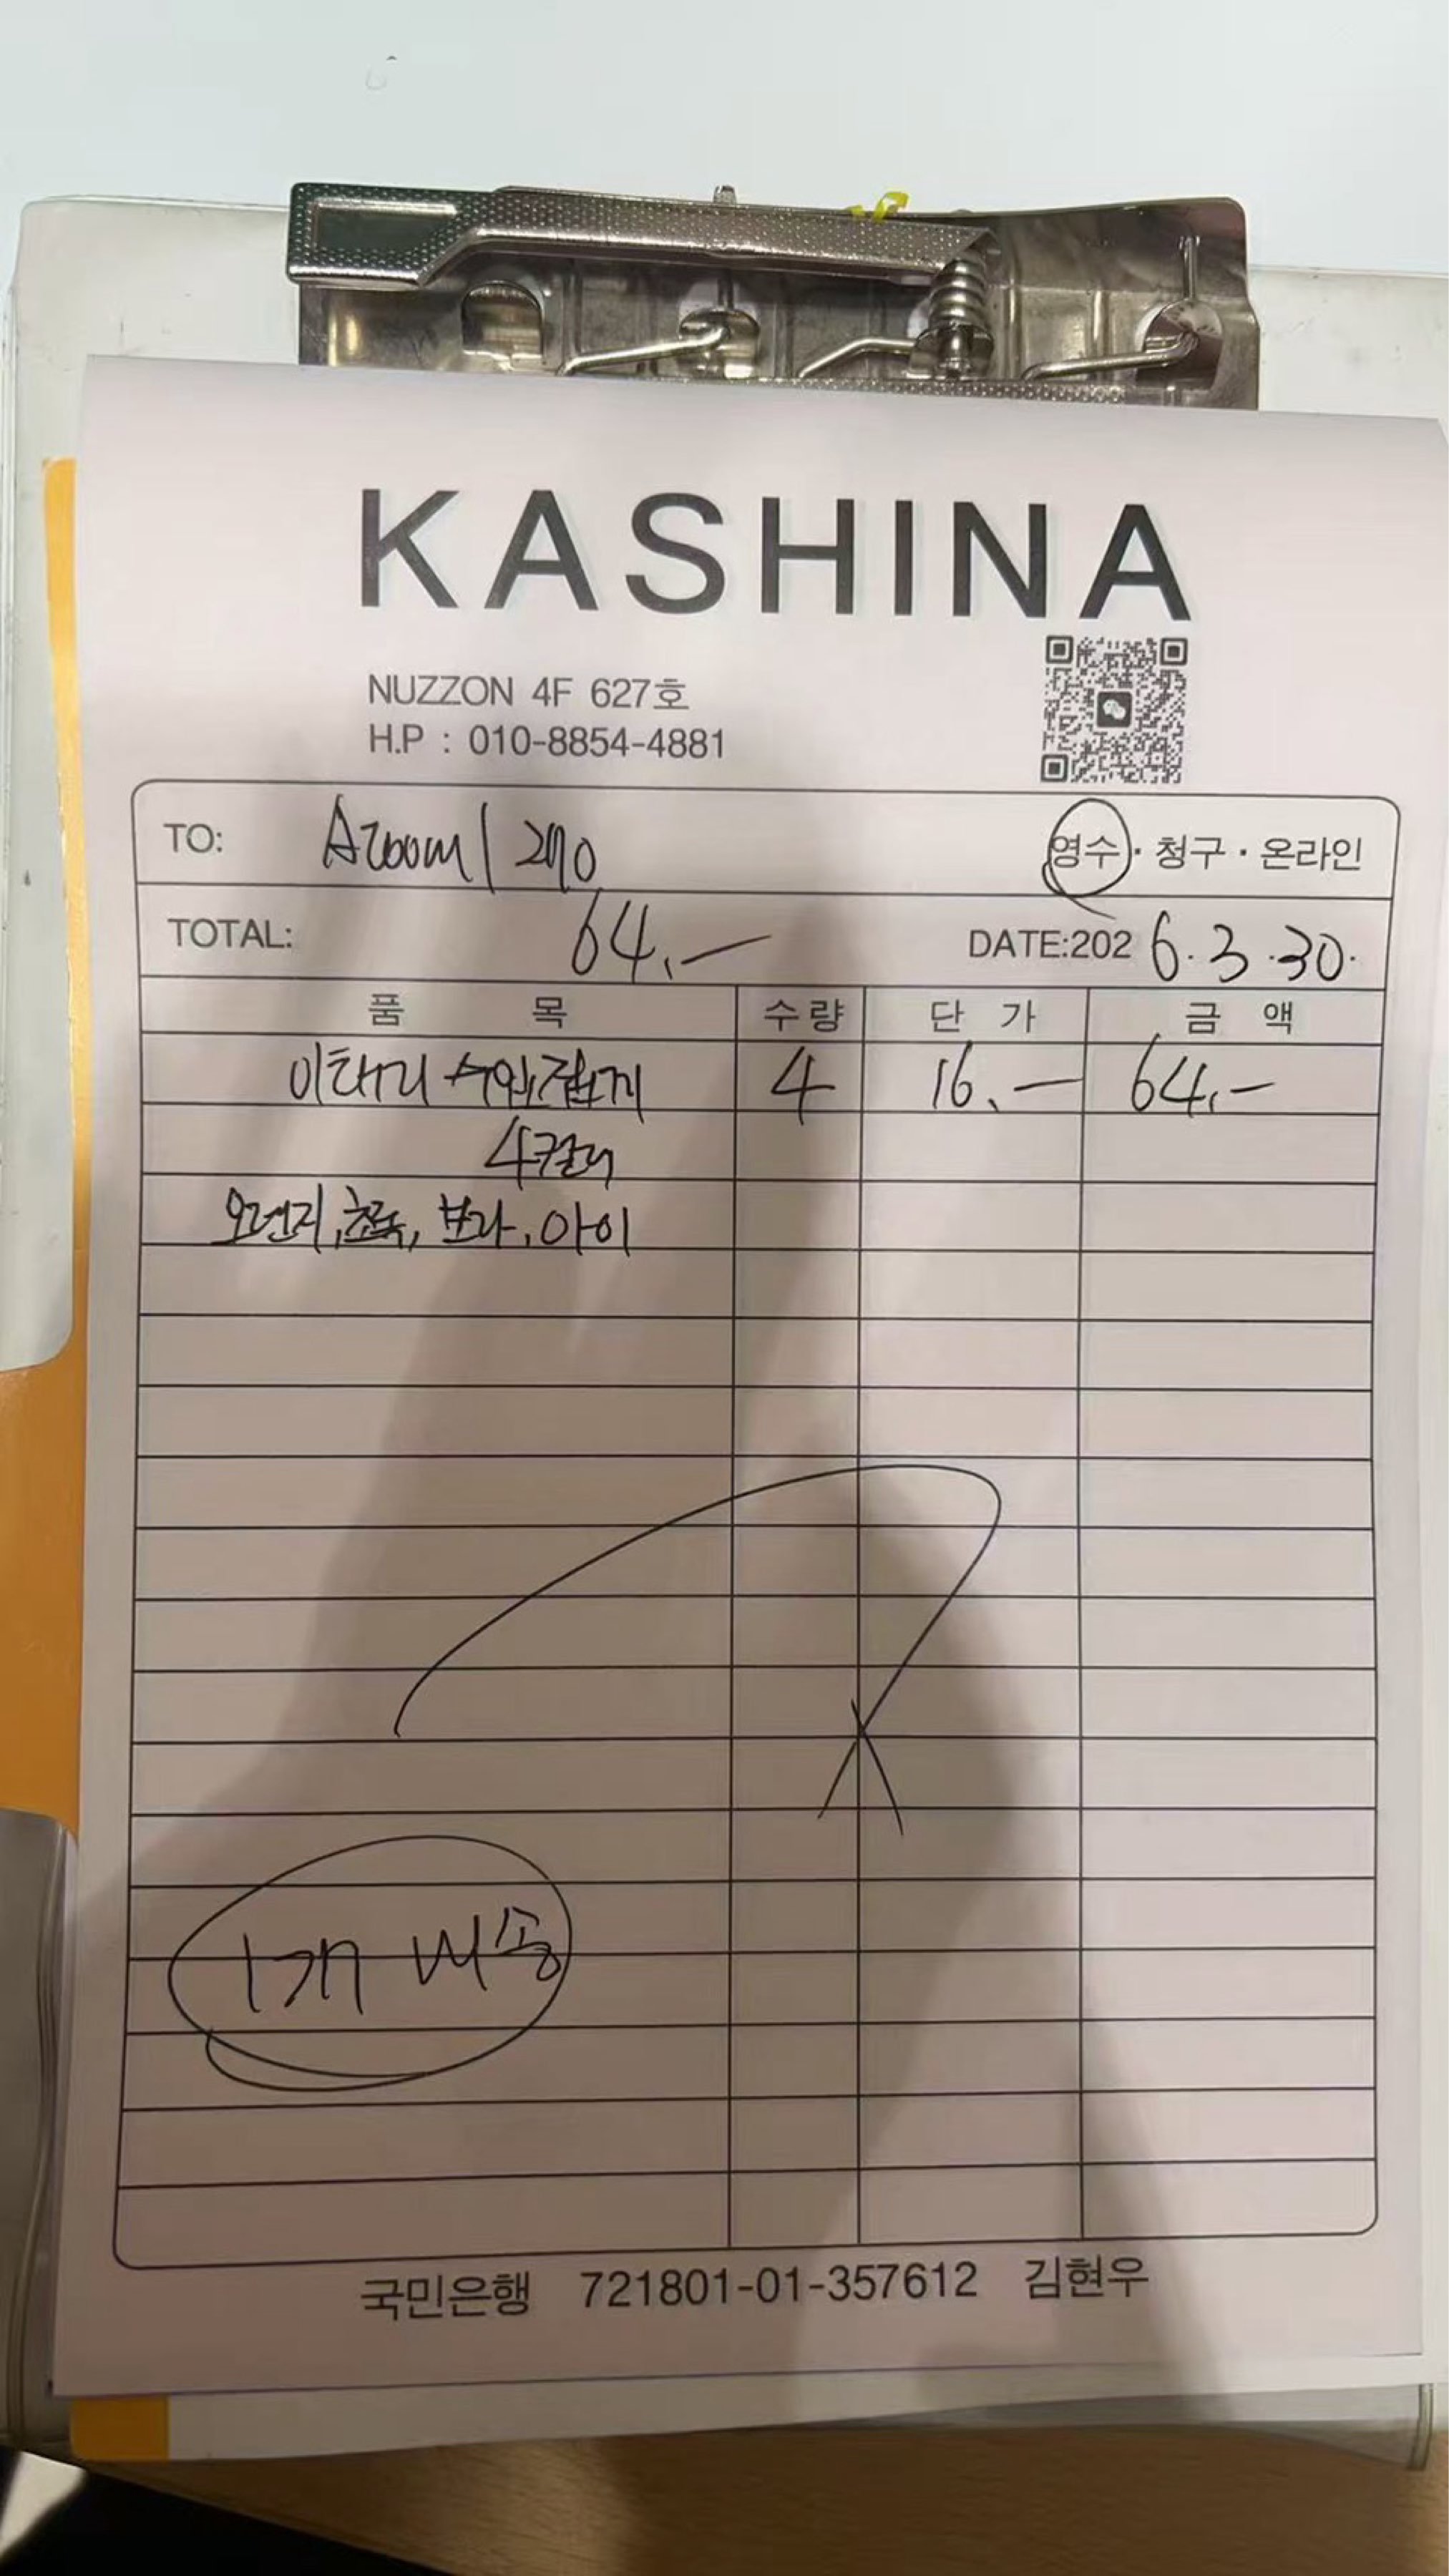 KASHINA
NUZZON 4F 627호
H.P : 010-8854-4881
TO: Azoom / 270 영수 · 청구 · 온라인
TOTAL: 64.- DATE:202 6.3.30.
품 목 수량 단 가 금 액
이태리 수입집게 4 16.- 64.-
4컬러
오렌지, 초록, 보라, 아이
1개 배송
국민은행 721801-01-357612 김현우